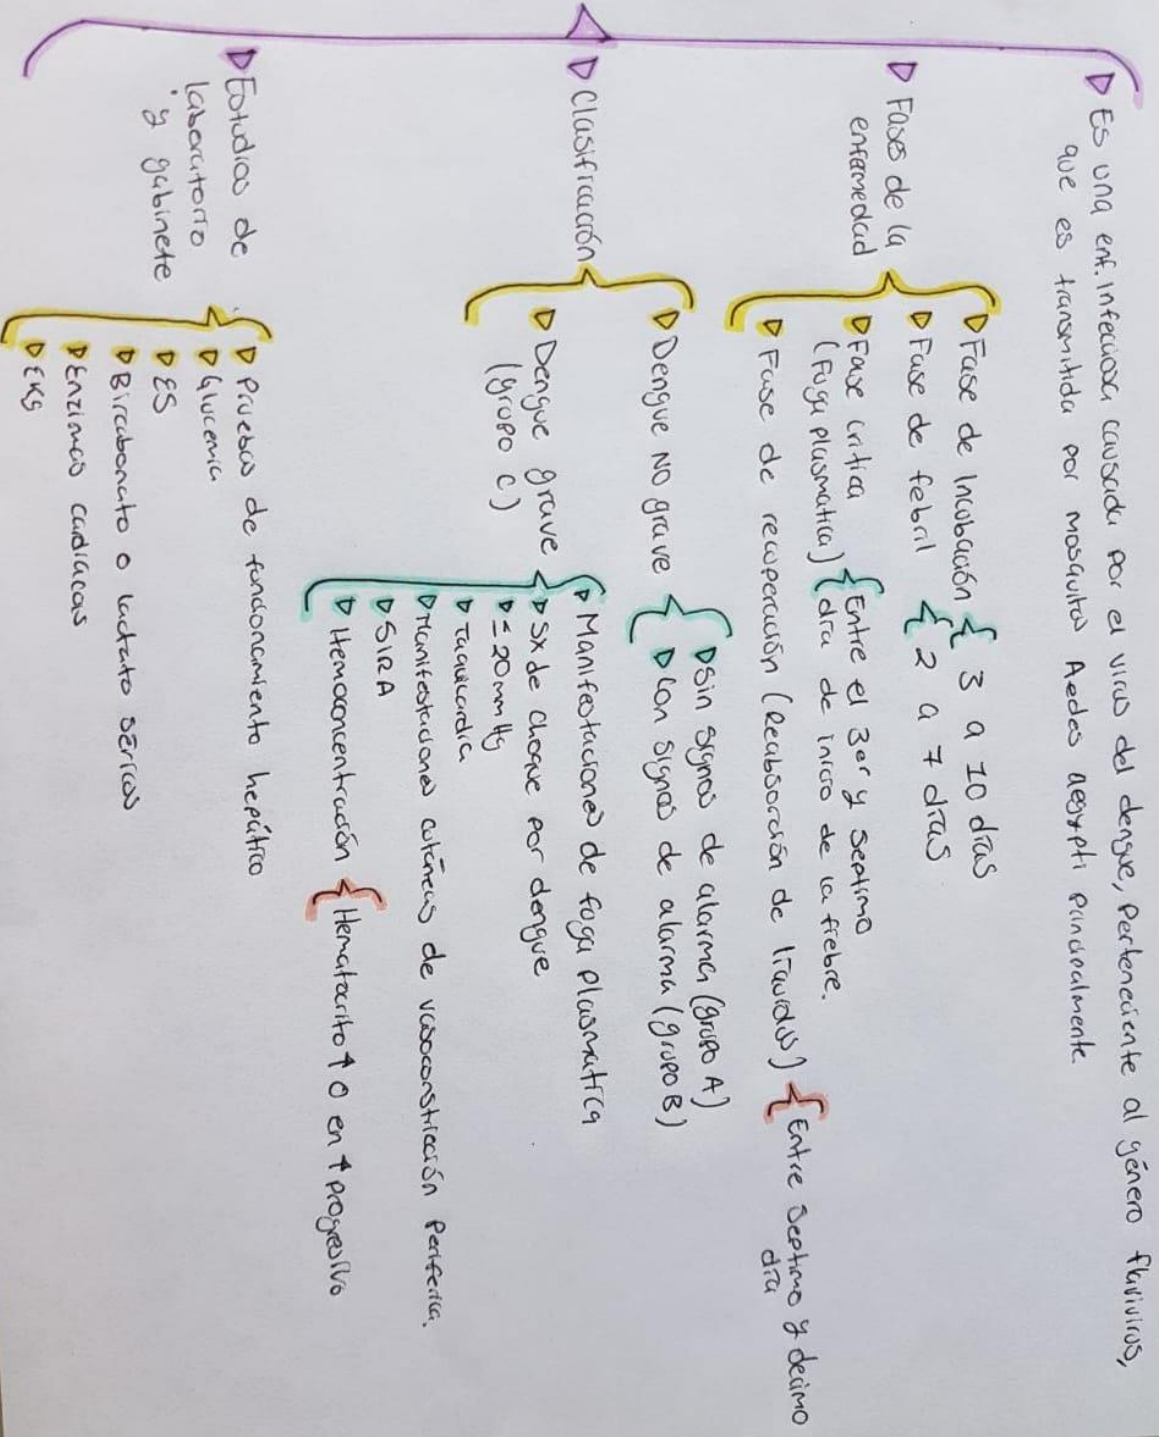 Es una enf. infecciosa causada por el virus del dengue, perteneciente al género flavivirus,
que es transmitida por mosquitos Aedes aegypti principalmente.
Fases de la
enfermedad
Fase de Incubación
3 a 10 días
Fase de febril
2 a 7 días
Fase critica
(Fuga plasmatica)
Entre el 3er y septimo
dia de inicio de la fiebre.
Fase de recuperación (Reabsorción de liquidos)
Entre septimo y decimo
dia
Clasificación
Dengue NO grave
Sin signos de alarma (grupo A)
Con signos de alarma (grupo B)
Dengue grave
(grupo C)
Manifestaciones de fuga plasmatica
Sx de choque por dengue
≤ 20 mmHg
Taquicardia
Manifestaciones cutáneas de vasoconstricción Periferica.
SIRA
Hemoconcentración
Hematocrito ↑ o en ↑ progresivo
Estudios de
laboratorio
y gabinete
Pruebas de funcionamiento hepático
Glucemia
ES
Bircabonato o lactato séricos
Enzimas cardiacas
EKg